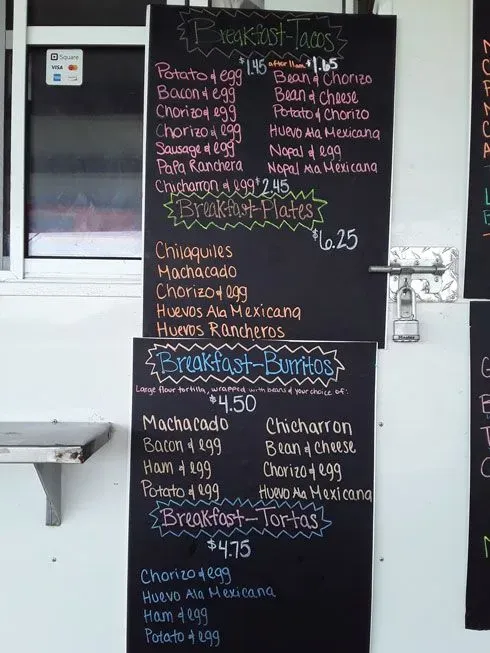 Square
VISA
Breakfast-Tacos
$1.45 after 11am $1.65
Potato & egg
Bacon & egg
Chorizo & egg
Chorizo & egg
Sausage & egg
Papa Ranchera
Chicharron & egg $2.45
Bean & Chorizo
Bean & Cheese
Potato & Chorizo
Huevo Ala Mexicana
Nopal & egg
Nopal Ala Mexicana
Breakfast-Plates
$6.25
Chilaquiles
Machacado
Chorizo & egg
Huevos Ala Mexicana
Huevos Rancheros
Breakfast-Burritos
Large flour tortilla, wrapped with beans & your choice of:
$4.50
Machacado
Bacon & egg
Ham & egg
Potato & egg
Chicharron
Bean & Cheese
Chorizo & egg
Huevo Ala Mexicana
Breakfast-Tortas
$4.75
Chorizo & egg
Huevo Ala Mexicana
Ham & egg
Potato & egg
Master